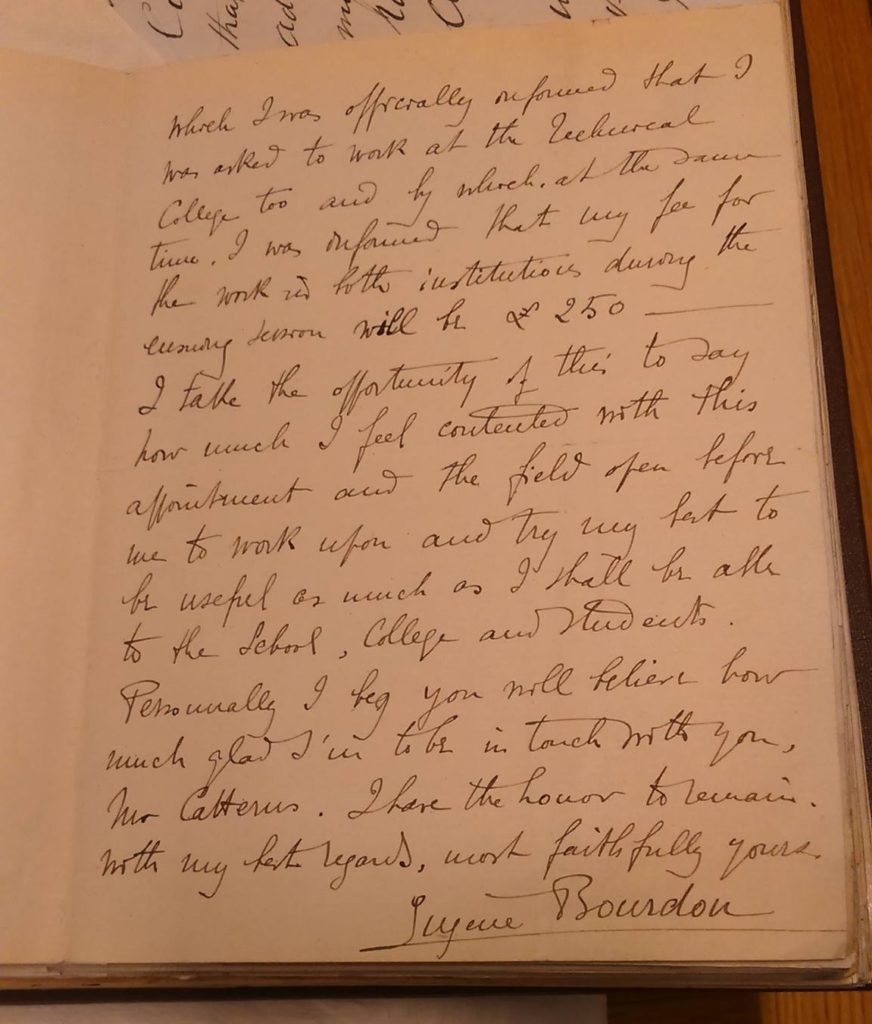 which I was officially informed that I
was asked to work at the Technical
College too and by which, at the same
time, I was informed that my fee for
the work in both institutions during the
ensuing session will be £ 250
I take the opportunity of this to say
how much I feel contented with this
appointment and the field open before
me to work upon and try my best to
be useful as much as I shall be able
to the School, College and students.
Personnally I beg you will believe how
much glad I'm to be in touch with you,
Mr Catterns. I have the honor to remain.
with my best regards, most faithfully yours.
Eugène Bourdon